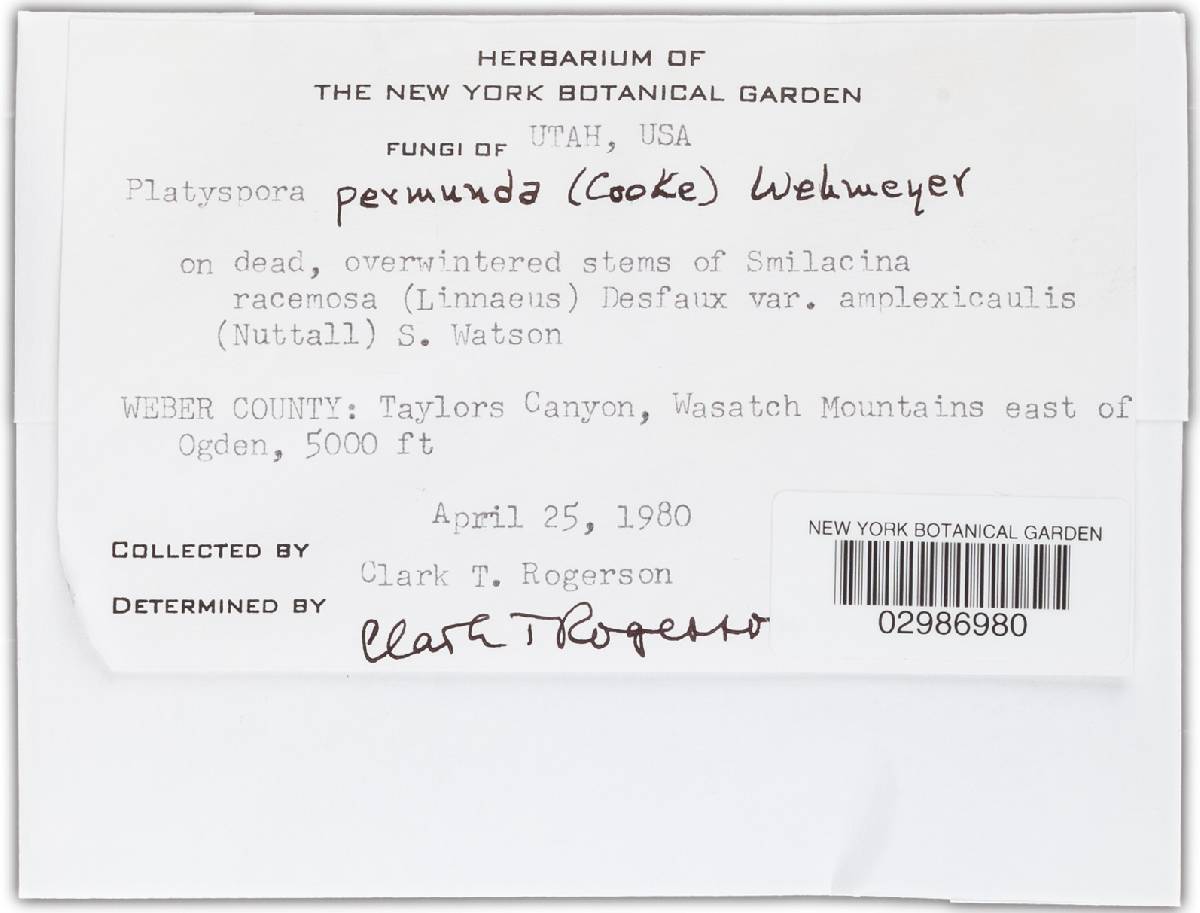 HERBARIUM OF
THE NEW YORK BOTANICAL GARDEN
FUNGI OF UTAH, USA
Platyspora permunda (Cooke) Wehmeyer
on dead, overwintered stems of Smilacina
racemosa (Linnaeus) Desfaux var. amplexicaulis
(Nuttall) S. Watson
WEBER COUNTY: Taylors Canyon, Wasatch Mountains east of
Ogden, 5000 ft
April 25, 1980
COLLECTED BY Clark T. Rogerson
DETERMINED BY Clark T Rogerson
NEW YORK BOTANICAL GARDEN
02986980